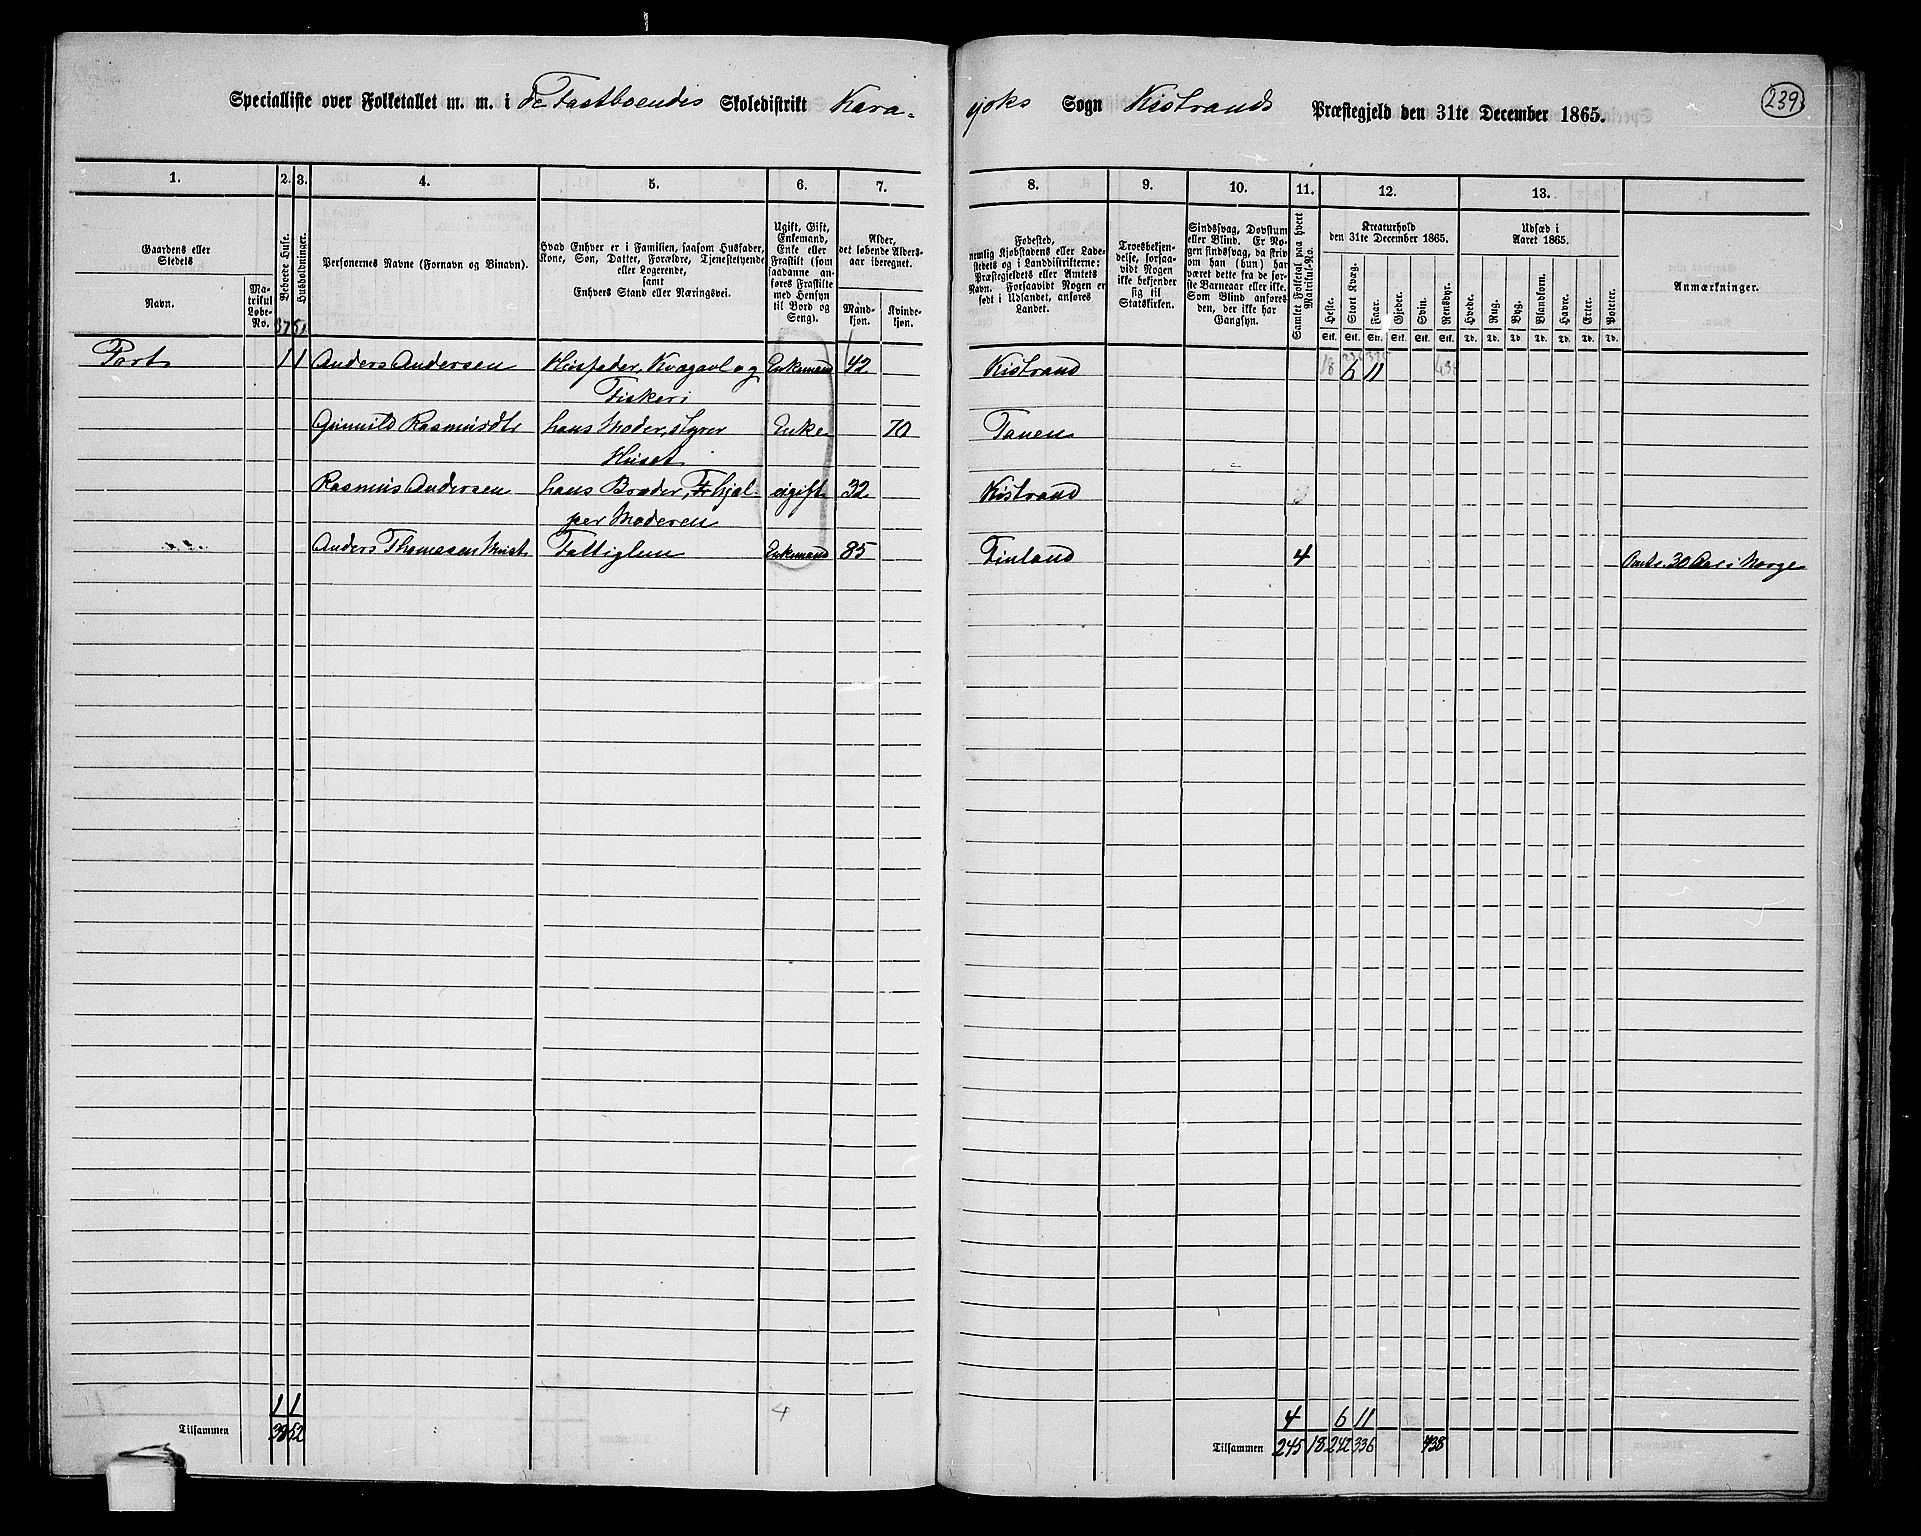 Specialliste over Folketallet m. m. i de Fastboendes Skoledistrikt Kara-
joks Sogn Kistrands Præstegjeld den 31te December 1865.
239
1. 2. 3. 4. 5. 6. 7.
8. 9. 10. 11. 12. 13.
Gaardens eller
Stedets
Navn.
Ma-
trikul
Løbe-
No.
Beboede Huse.
Husholdninger.
Personernes Navne (Fornavn og Binavn).
Hvad Enhver er i Familien, saasom Husfader,
Kone, Søn, Datter, Forældre, Tjenestetyende
eller Logerende,
samt
Enhvers Stand eller Næringsvei.
Ugift, Gift,
Enkemand,
Enke eller
Fraskilt (som
saadanne an-
føres Fraskilte
med Hensyn
til Bord og
Seng).
Alder,
det løbende Alders-
aar iberegnet.
Mand-
kjøn.
Kvinde-
kjøn.
Fødested,
nemlig Kjøbstadens eller Lade-
stedets og i Landdistrikterne:
Præstegjeldets eller Amtets
Navn. Forsaavidt Nogen er
født i Udlandet, anføres
Landet.
Troesbekjen-
delse, forsaa-
vidt Nogen
ikke bekjender
sig til
Statskirken.
Sindssvag, Døvstum
eller Blind. Er No-
gen sindssvag, da skriv
om han (hun) har
været dette fra de før-
ste Barneaar eller ikke.
Som Blind anføres
den, der ikke har
Gangsyn.
Samlet Folketal paa hvert
Matrikul-No.
Kreaturhold
den 31te December 1865.
Heste.
Stort Kvæg.
Faar.
Gjeder.
Sviin.
Rensdyr.
Stk. Stk. Stk. Stk. Stk. Stk.
Udsæd i
Aaret 1865.
Hvede.
Rug.
Byg.
Blandkorn.
Havre.
Erter.
Poteter.
Td. Td. Td. Td. Td. Td. Td.
Anmærkninger.
37 51
18 236 325 438
Port 1 1 Anders Andersen Husfader, Kvægavl og Enkemand 42 Kistrand 6 11
Fiskeri
Gunnild Rasmusdtr hans Moder, styrer Enke 70 Tanen
Huset
Rasmus Andersen hans Broder, hjæl- ugift 32 Kistrand
per Moderen
Anders Thomesen Fattiglem Enkemand 85 Finland 4 30 Aar i Norge
1 1 4 4 6 11
Tilsammen 38 52 Tilsammen 245 18 242 336 438